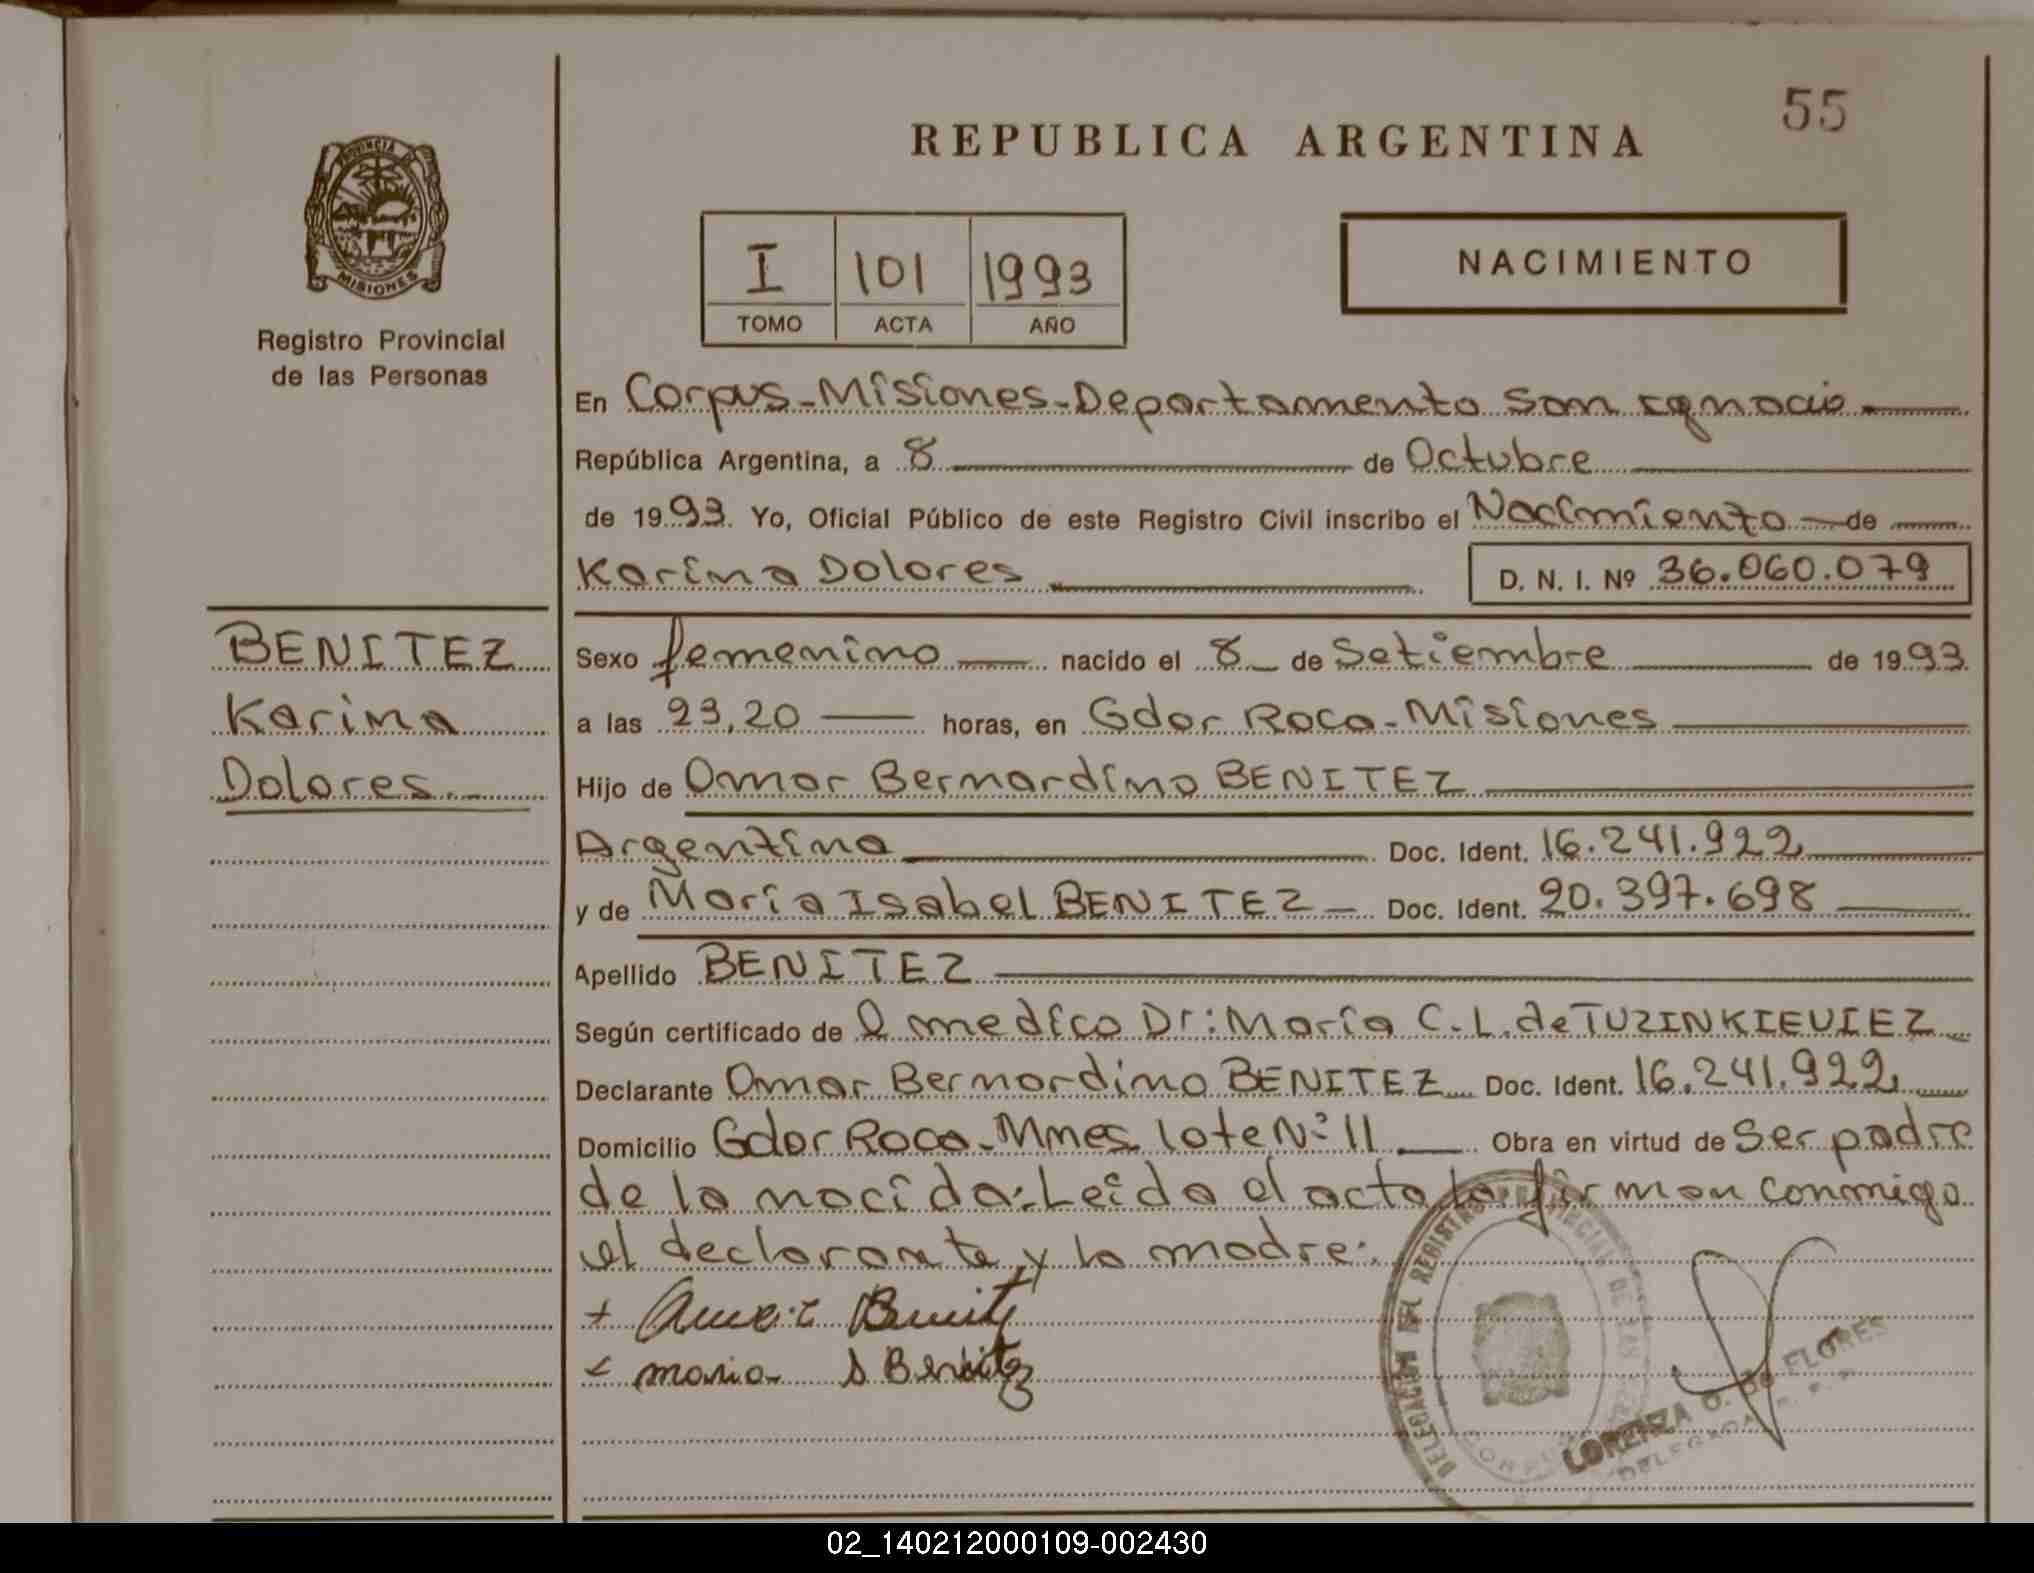 55
REPUBLICA ARGENTINA
PROVINCIA DE
MISIONES
Registro Provincial
de las Personas
I 101 1993
TOMO ACTA AÑO
NACIMIENTO
En Corpus-Misiones-Departamento San Ignacio
República Argentina, a 8 de Octubre
de 1993. Yo, Oficial Público de este Registro Civil inscribo el Nacimiento de
Karina Dolores D. N. I. Nº 36.060.079
BENITEZ
Karina
Dolores.-
Sexo femenino nacido el 8 de Setiembre de 1993.
a las 23,20 horas, en Gdor Roca-Misiones
Hijo de Omar Bernardino BENITEZ
Argentina Doc. Ident. 16.241.922
y de María Isabel BENITEZ Doc. Ident. 20.397.698
Apellido BENITEZ
Según certificado de l medico Dr: María C.L. de TUZINKIEVIEZ
Declarante Omar Bernardino BENITEZ Doc. Ident. 16.241.922
Domicilio Gdor Roca-Mnes lote Nº 11 Obra en virtud de Ser padre
de la nacida:Leida el acta la firman conmigo
el declarante y la madre:
Benitz
maria Benitez
DELEGACION DEL REGISTRO PROVINCIAL DE LAS
CORPUS
LORENZA O. DE FLORES
DELEGADA R. P. P.
02_140212000109-002430